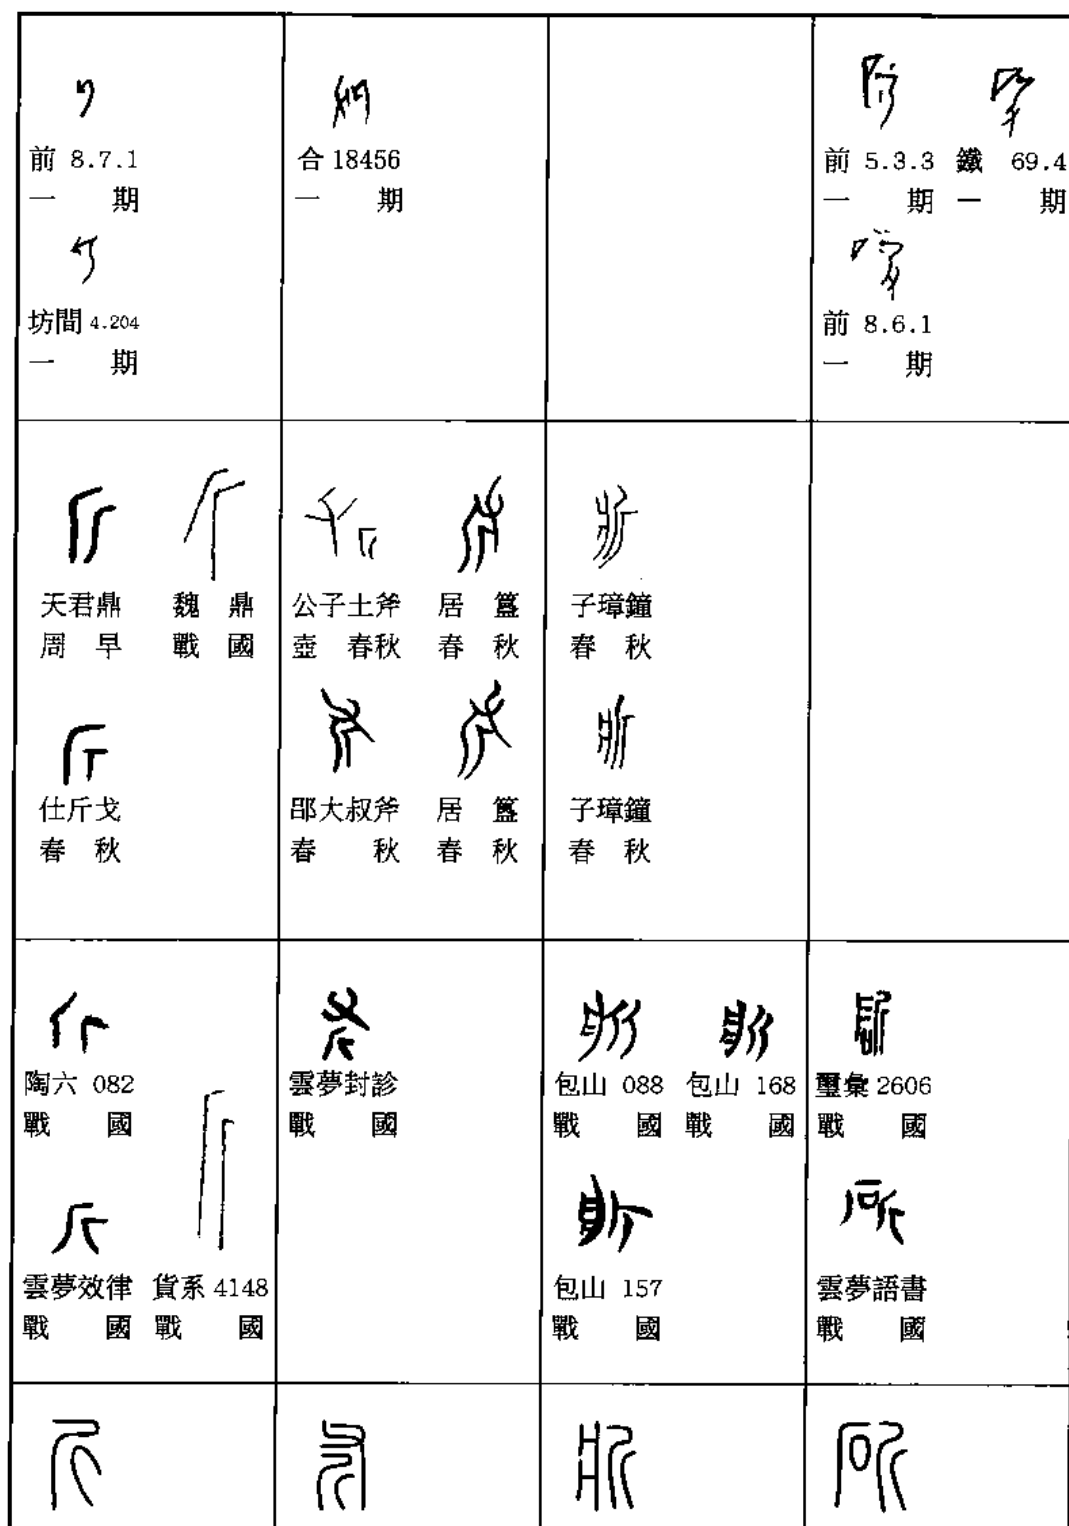 前 8.7.1
一 期
坊間 4.204
一 期
合 18456
一 期
前 5.3.3 鐵 69.4
一 期 一 期
前 8.6.1
一 期
天君鼎 魏 鼎
周 早 戰 國
仕斤戈
春 秋
公子土斧 居 簋
壺 春秋 春 秋
邵大叔斧 居 簋
春 秋 春 秋
子璋鐘
春 秋
子璋鐘
春 秋
陶六 082
戰 國
雲夢效律 貨系 4148
戰 國 戰 國
雲夢封診
戰 國
包山 088 包山 168
戰 國 戰 國
包山 157
戰 國
璽彙 2606
戰 國
雲夢語書
戰 國